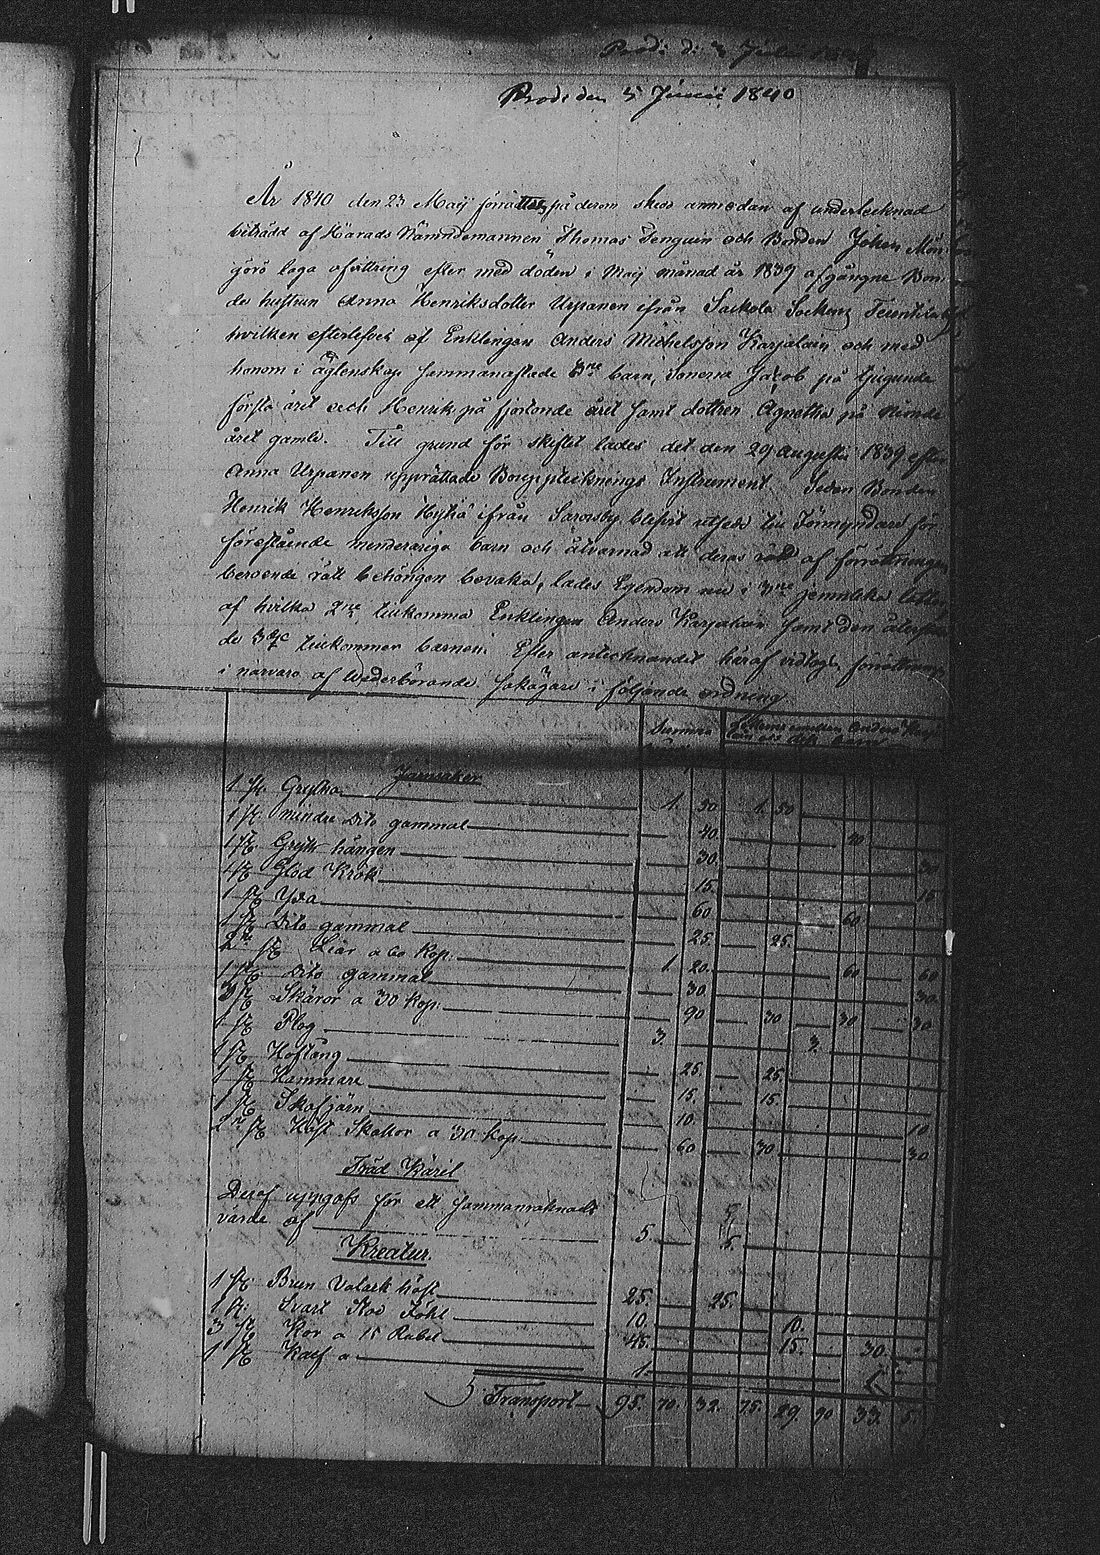 Prod: d: 3 Juli
Prod: den 5 Junii 1840
År 1840 den 23 Maij förrättades på derom skedd anmodan af undertecknad
biträdd af Härads Nämndemannen Thomas Jenguin och Bonden Johan Mön
jörö laga afvittring efter med döden i Maij månad år 1839 afgångne Bon
de hustrun Anna Henriksdotter Urpanen ifrån Sackola Socken
hvilken efterlefves af Enklingen Anders Michelsson Karjalain och med
honom i äktenskap sammanaflade 3ne barn, sönerna Jacob på tjugunde
första året och Henrik på fjortonde året samt dottren Agnetha på nionde
året gamla. Till grund för skiftet lades det den 29 Augusti 1839 efter
Anna Urpanen upprättade Boupptecknings Instrument Sedan Bonden
Henrik Henriksson från blifvit utsedd till Förmyndare för
förestående menderåriga barn och åtvarnad att deras rätt af förrättningen
beroende rätt behörigen bevaka, lades Egendomen i 3ne jemnlika lotter
af hvilka 2ne tillkomma Enklingen Anders Karjalain samt den återstån
de 3dje tillkommer barnen. Efter antecknandet häraf vidtogs förrättningen
i närvaro af wederbörande sakägare i följande ordning
Summa
Anders
barn
Jernsaker
1 st. Gryta 1. 50. 1. 50
1 st. mindre Dito gammal 40. 40
1 st. Gryt hängen 30. 30
1 st. Glöd Krok 15. 15
1 st. Yxa 60. 60
1 st. Dito gammal 25. 25
2ne st. Liar a 60 kop. 1. 20. 60 60
1 st. Dito gammal 30. 30
3 st. Skäror a 30 kop. 90 30 30 30
1 st. Plog 3. 3.
1 st. Hoftång 25. 25.
1 st. Hammare 15. 15.
1 st. Skafjärn 10. 10
2ne st. Häst Skakor a 30 kop. 60 30 30
Träd Käril
Deraf uppgafs för ett sammanräknadt
värde af 5 5.
Kreatur
1 st. Brun Valack häst 25. 25.
1 st. Svart Sto Föhl 10. 10.
3 st. Kor a 15 Rubel 45. 15. 30.
1 st. Kalf a 1
Transport 95. 70. 32. 75. 29. 90 33. 5.